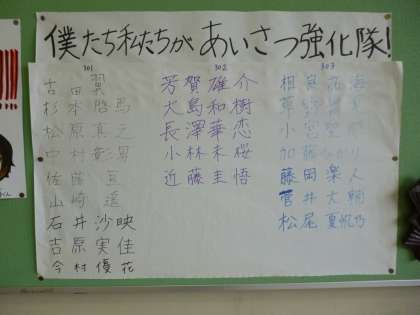 僕たち私たちが あいさつ強化隊!
301
吉田翼
杉本啓馬
松原真之
中村彰昇
佐藤
山崎遥
石井沙映
吉原実佳
今村優花
302
芳賀雄介
大島和樹
長澤華恋
小林未桜
近藤圭悟
303
相良花海
草野
小宮
加藤ひかり
藤岡楽人
菅井大輔
松尾夏帆乃